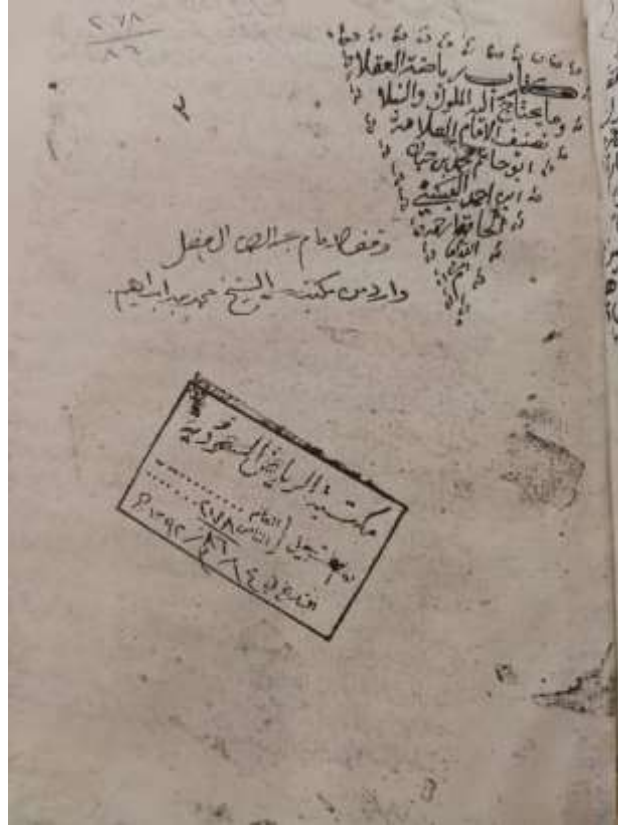 ٢٧٨
٨٦
٣
كتاب رياضة العقلا
وما يحتاج اليه الملوك والنبلا
تصنيف الامام العلامة
ابو حاتم محمد بن حبان
ابن احمد البستي
الحافظ رحمه
الله
وقف الامام عبد الرحمن الفيصل
وارد من مكتبة الشيخ محمد بن ابراهيم
مكتبة الرياض السعودية
العام
التسجيل الخاص ٢٧٨
٨٦
التاريخ ١٣٩٢